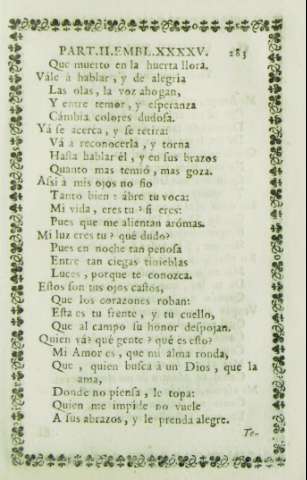 PART.II.EMBL.XXXXV. 283
Que muerto en la huerta llora.
Vale à hablar, y de alegria
Las olas, la voz ahogan,
Y entre temor, y esperanza
Cámbia colores dudosa.
Yá se acerca, y se retira:
Vá à reconocerla, y torna
Hasta hablar él, y en sus brazos
Quanto mas temió, mas goza.
Assi à mis ojos no fio
Tanto bien: ábre tu voca:
Mi vida, eres tu? si eres:
Pues que me alientan arómas.
Mi luz eres tu? qué dudo?
Pues en noche tan penosa
Entre tan ciegas tinieblas
Luces, porque te conozca.
Estos son tus ojos castos,
Que los corazones roban:
Esta es tu frente, y tu cuello,
Que al campo su honor despojan.
Quien vá? qué gente? qué es esto?
Mi Amor es, que mi alma ronda,
Que, quien busca à un Dios, que la
ama,
Donde no piensa, le topa:
Quien me impide no vuele
A sus abrazos, y le prenda alegre.
Te-